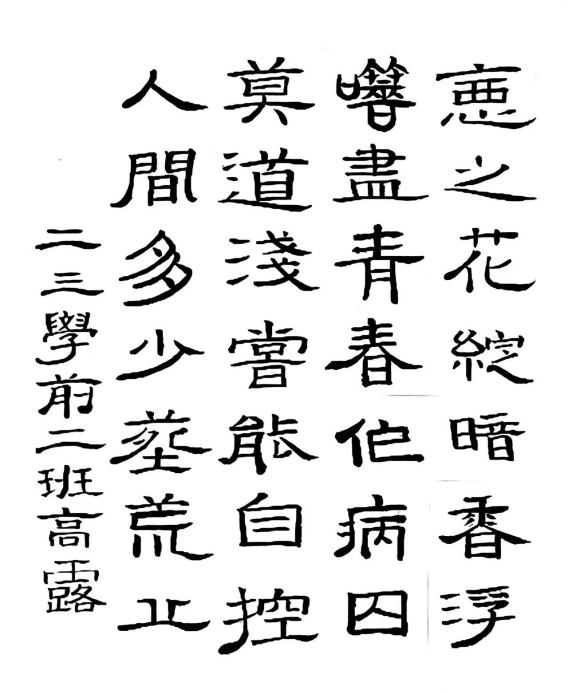 惡之花綻暗香浮
盡青春作病囚
莫道淺嘗能自控
人間多少荒丘
二三學前二班高露